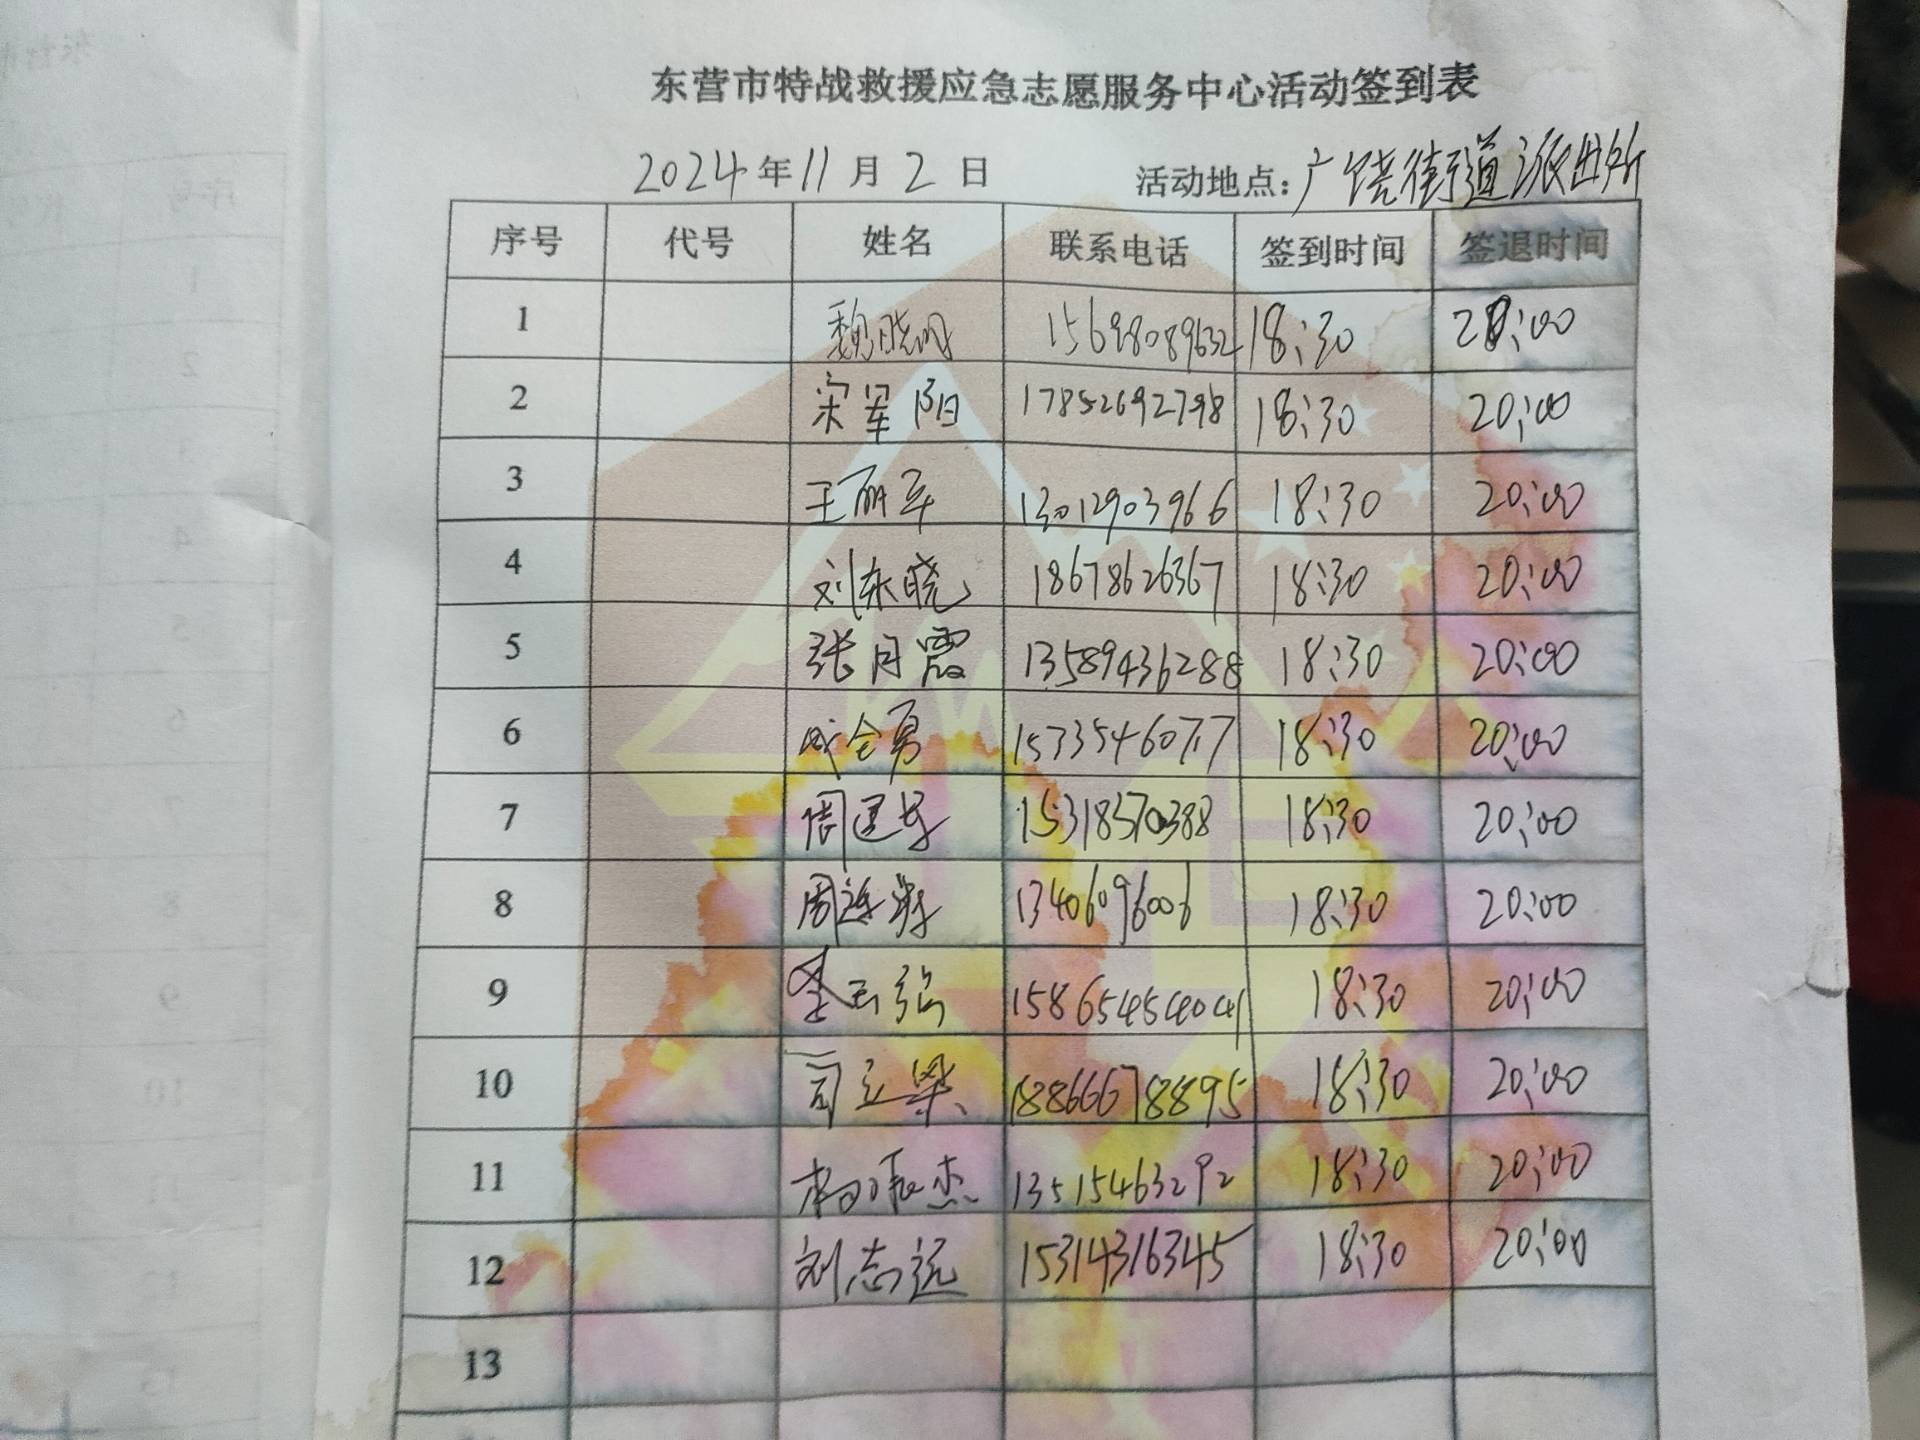 东营市特战救援应急志愿服务中心活动签到表
2024年11月2日 活动地点:广饶街道派出所
序号 代号 姓名 联系电话 签到时间 签退时间
1 魏晓 15698089632 18:30 20:00
2 宋军阳 17852692798 18:30 20:00
3 王丽军 13012903966 18:30 20:00
4 刘东晓 18678626367 18:30 20:00
5 张月霞 13589436288 18:30 20:00
6 成全勇 15735546077 18:30 20:00
7 周建 15318570388 18:30 20:00
8 周 13406096006 18:30 20:00
9 15865454041 18:30 20:00
10 司立梁 18866678895 18:30 20:00
11 杨振杰 13515463292 18:30 20:00
12 刘志远 15314316345 18:30 20:00
13